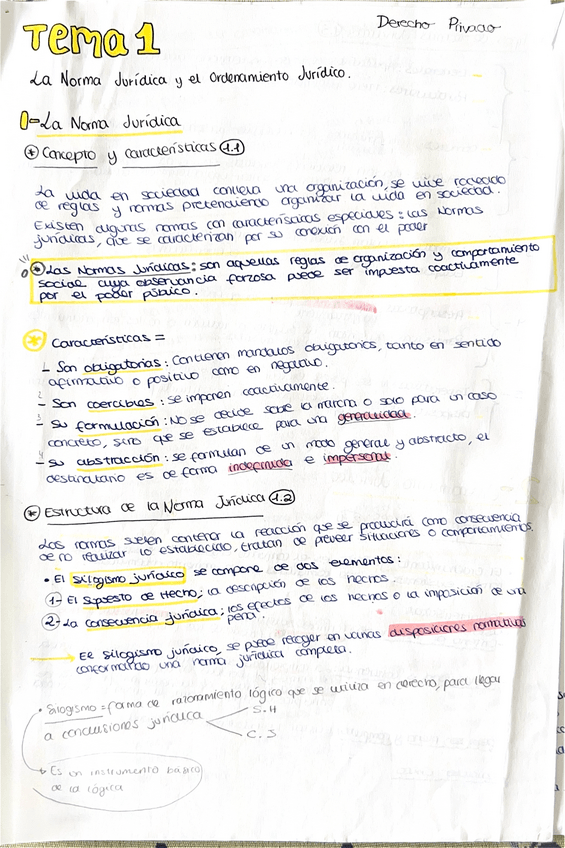 Derecho Privado
Tema 1
La Norma Jurídica y el Ordenamiento Jurídico.
La Norma Jurídica
Concepto y características 1.1
La vida en sociedad conlleva una organización, se vive rodeado
de reglas y normas pretendiendo organizar la vida en sociedad.
Existen algunas normas con características especiales: las Normas
jurídicas, que se caracterizan por su conexión con el poder
Las Normas Jurídicas: son aquellas reglas de organización y comportamiento
social cuya observancia forzosa puede ser impuesta coactivamente
por el poder público.
Características =
- Son obligatorias: Contienen mandatos obligatorios, tanto en sentido
afirmativo o positivo como en negativo.
- Son coercibles: se imponen coactivamente.
- Su formulación: No se decide sobre la marcha o solo para un caso
concreto, sino que se establece para una generalidad.
- Su abstracción: se formulan de un modo general y abstracto, el
desanatario es de forma indefinida e impersonal.
Estructura de la Norma Jurídica 1.2
Las normas suelen contener la reacción que se producirá como consecuencia
de no realizar lo establecido, tratan de prever situaciones o comportamientos.
• El silogismo jurídico se compone de dos elementos:
1- El Supuesto de Hecho; la descripción de los hechos.
2- La consecuencia jurídica; los efectos de los hechos o la imposición de una
pena.
→ El silogismo jurídico, se puede recoger en varias disposiciones normativas
conformando una norma jurídica completa.
• Silogismo = forma de razonamiento lógico que se utiliza en derecho, para llegar
a conclusiones jurídica
S.H
C.J
→ Es un instrumento básico
de la lógica